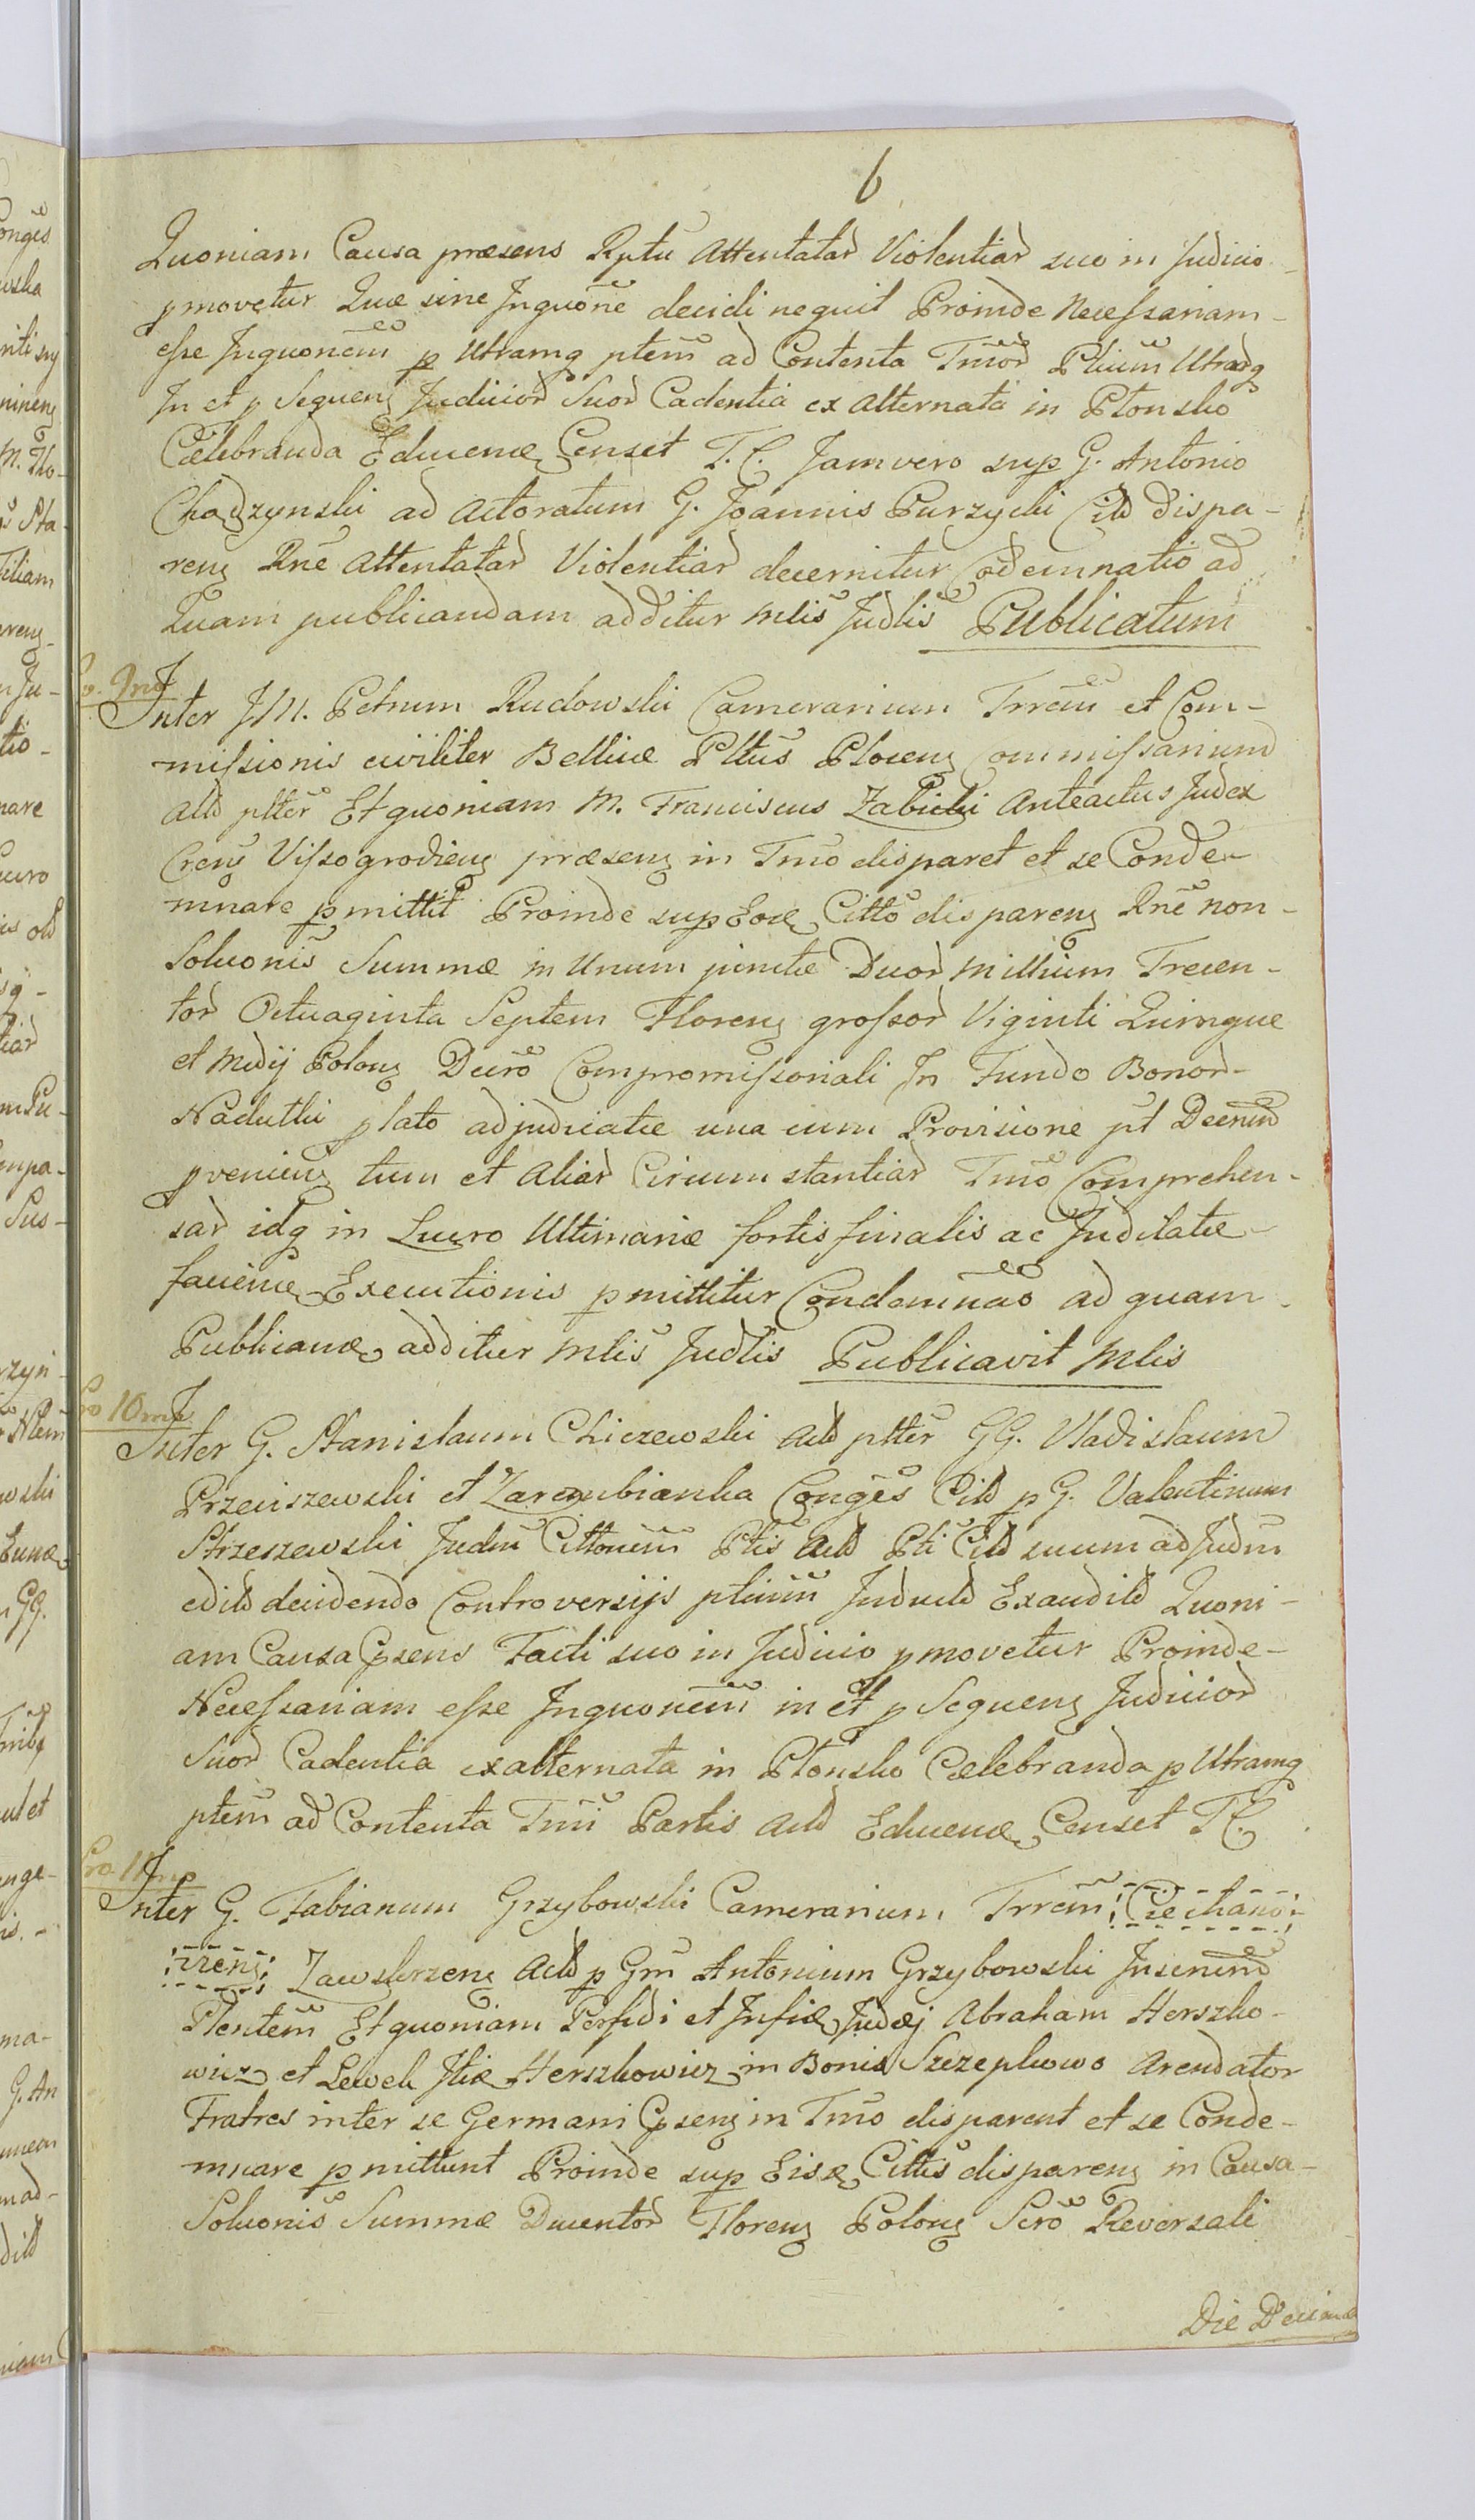 6
Quoniam Causa præsens Rptu Attentatar Violentiar suo in Judicio
pmovetur Quæ sine Inquõne decidi nequit Proinde Necessariam
esse Inquonem p Utramq ptem ad Contenta Tmor Ptium Utrarq
In et p Sequen Judicior Suor Cadentia ex Alternata in Płonsko
Cælebranda Educenæ Censet T. C. Jamvero sup G. Antonio
Chądzynski ad Actoratum G. Joannis Purzycki Citd dispa-
ren Rne Attentatar Violentiar decernitur Codemnatio ad
Quam publicandam additur Mlis Judlis Publicatum
Pro 9no
Inter J M. Petrum Rudowski Camerarium Trrem et Com-
missionis civiliter Bellicæ Pltus Plocen Commissarium
Actd pltter Et quoniam M. Franciscus Zabicki Anteactus Judex
Cren Vissogrodien præsens in Tmo disparet et se Conde-
mnare pmittit Proinde sup Eoq Citto disparen Rne non-
Soluonis Summæ in Unum junctæ Duor Millium Trecen-
tor Octuaginta Septem Floren grossor Viginti Quinque
et Medij Polon Decro Compromissoriali In Fundo Bonor
Nadutki plato adjudicatæ una cum Provisione pt Decrud
pvenien tum et Aliar Circumstantiar Tmo Comprehen-
sar idq in Lucro Ultimariæ fortis finalis ac Judicatæ
faciencæ Executionis pmittitur Condemnao ad quam
Publicanæ additur Mlis Judlis Publicavit Mlis
Pro 10mo
Inter G. Stanislaum Cliczewski Actd pltter GG. Vladislaum
Przeciszewski et Zarembianka Conges Citd p G. Valentinum
Strzeszewski Judm Cittonem Ptis Actd Pti Citd suum ad Judm
edild decidendo Controversijs ptium Inductd Exaudild Quoni-
am Causa Psens Facti suo in Judicio pmovetur Proinde-
Necessariam esse Inquonem in et p Sequen Judicior
Suor Cadentia ex alternata in Płonsko Cælebranda p Utramq
ptem ad Contenta Tmi Partis Actd Educenæ Censet T C.
Pro 11mo
Inter G. Fabianum Grzybowski Camerarium Trrem Ciechano-
vien Zawskrzen Actd p Gm Antonium Grzybowski
Plentem Et quoniam Perfidi et Infiæ Judæj Abraham Herszko-
wicz et Lewek Itiæ Herszkowicz in Bonis Szczepkowo Arendator
Fratres inter se Germani Psens in Tmo disparent et se Conde-
mnare pmittunt Proinde sup Eisq Cittis disparen in Causa-
Soluonis Summæ Ducentor Floren Polon Scro Reversali
Die Decima